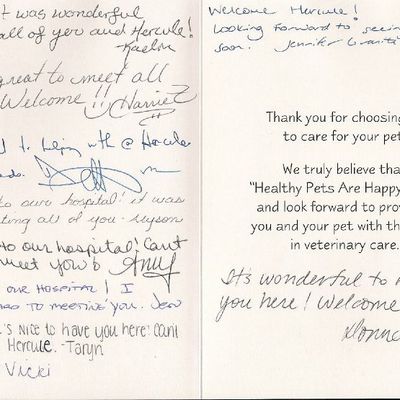 t was wonderful
all of you and Hercule!
-Kaelin
great to meet all
Welcome!! Harriet
d to helping with @ Hercule
to our hospital! it was
ting all of you - Alyson
to our hospital! Can't
meet you's Amy
our hospital! I
to meeting you. Jen
's nice to have you here! Can't
Hercule. -Taryn
Vicki
Welcome Hercule!
Looking forward to seeing
soon. Jennifer
Thank you for choosing
to care for your pet
We truly believe tha
"Healthy Pets Are Happy
and look forward to prov
you and your pet with th
in veterinary care.
It's wonderful to
you here! Welcome
Donna